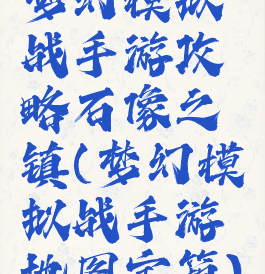 梦幻模拟
战手游攻
略石像之
镇(梦幻模
拟战手游
地图宝箱)